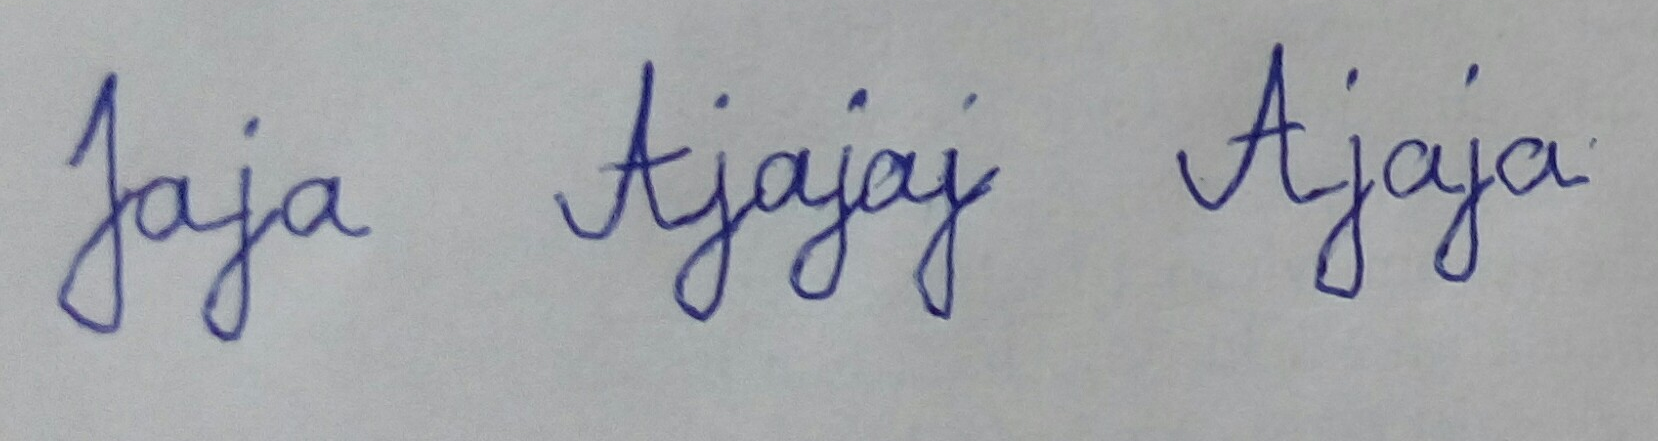 Jaja Ajajaj Ajaja